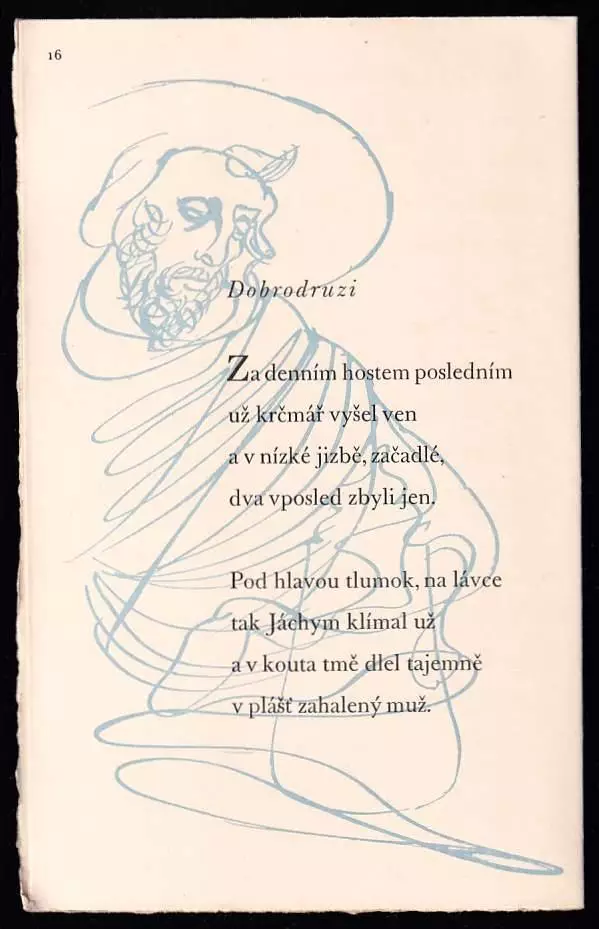 16
Dobrodruzi
Za denním hostem posledním
už krčmář vyšel ven
a v nízké jizbě, začadlé,
dva vposled zbyli jen.
Pod hlavou tlumok, na lávce
tak Jáchym klímal už
a v kouta tmě dlel tajemně
v plášť zahalený muž.